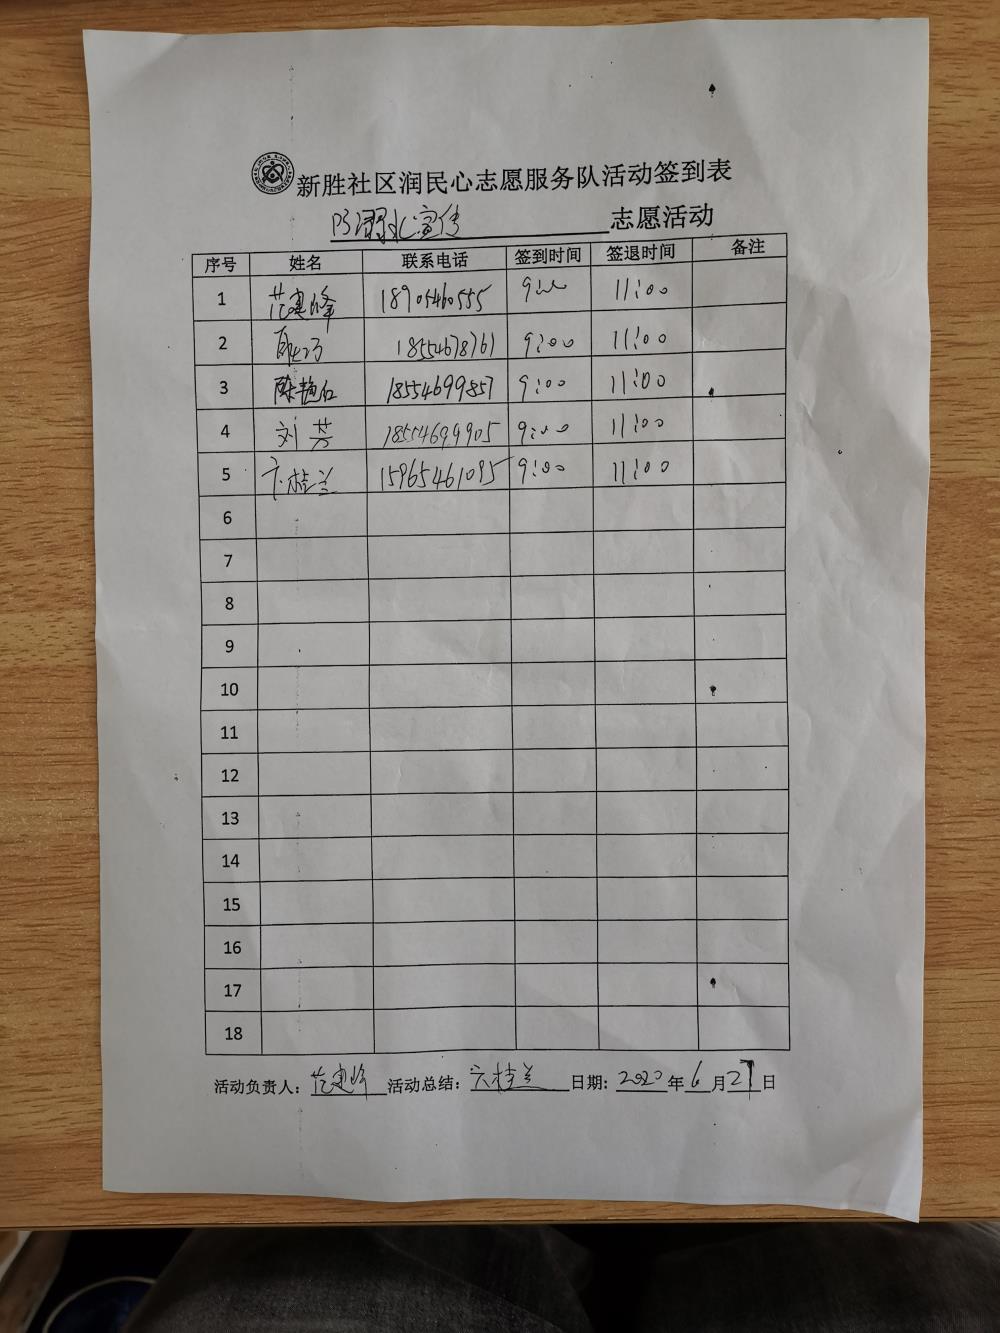 新胜社区润民心志愿服务队活动签到表
防溺水宣传 志愿活动
序号 姓名 联系电话 签到时间 签退时间 备注
1 范建峰 18905460555 9:00 11:00
2 18554678761 9:00 11:00
3 陈艳红 18554699857 9:00 11:00
4 刘芳 18554699905 9:00 11:00
5 卞桂兰 15965461095 9:00 11:00
6
7
8
9
10
11
12
13
14
15
16
17
18
活动负责人：范建峰 活动总结：卞桂兰 日期：2020年6月21日